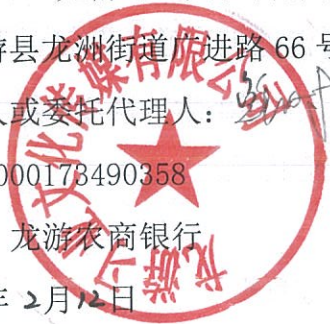 游县龙洲街道广进路 66 号
人或委托代理人：
000173490358
龙游农商银行
年 2月12日
文化传媒有限公司
龙游